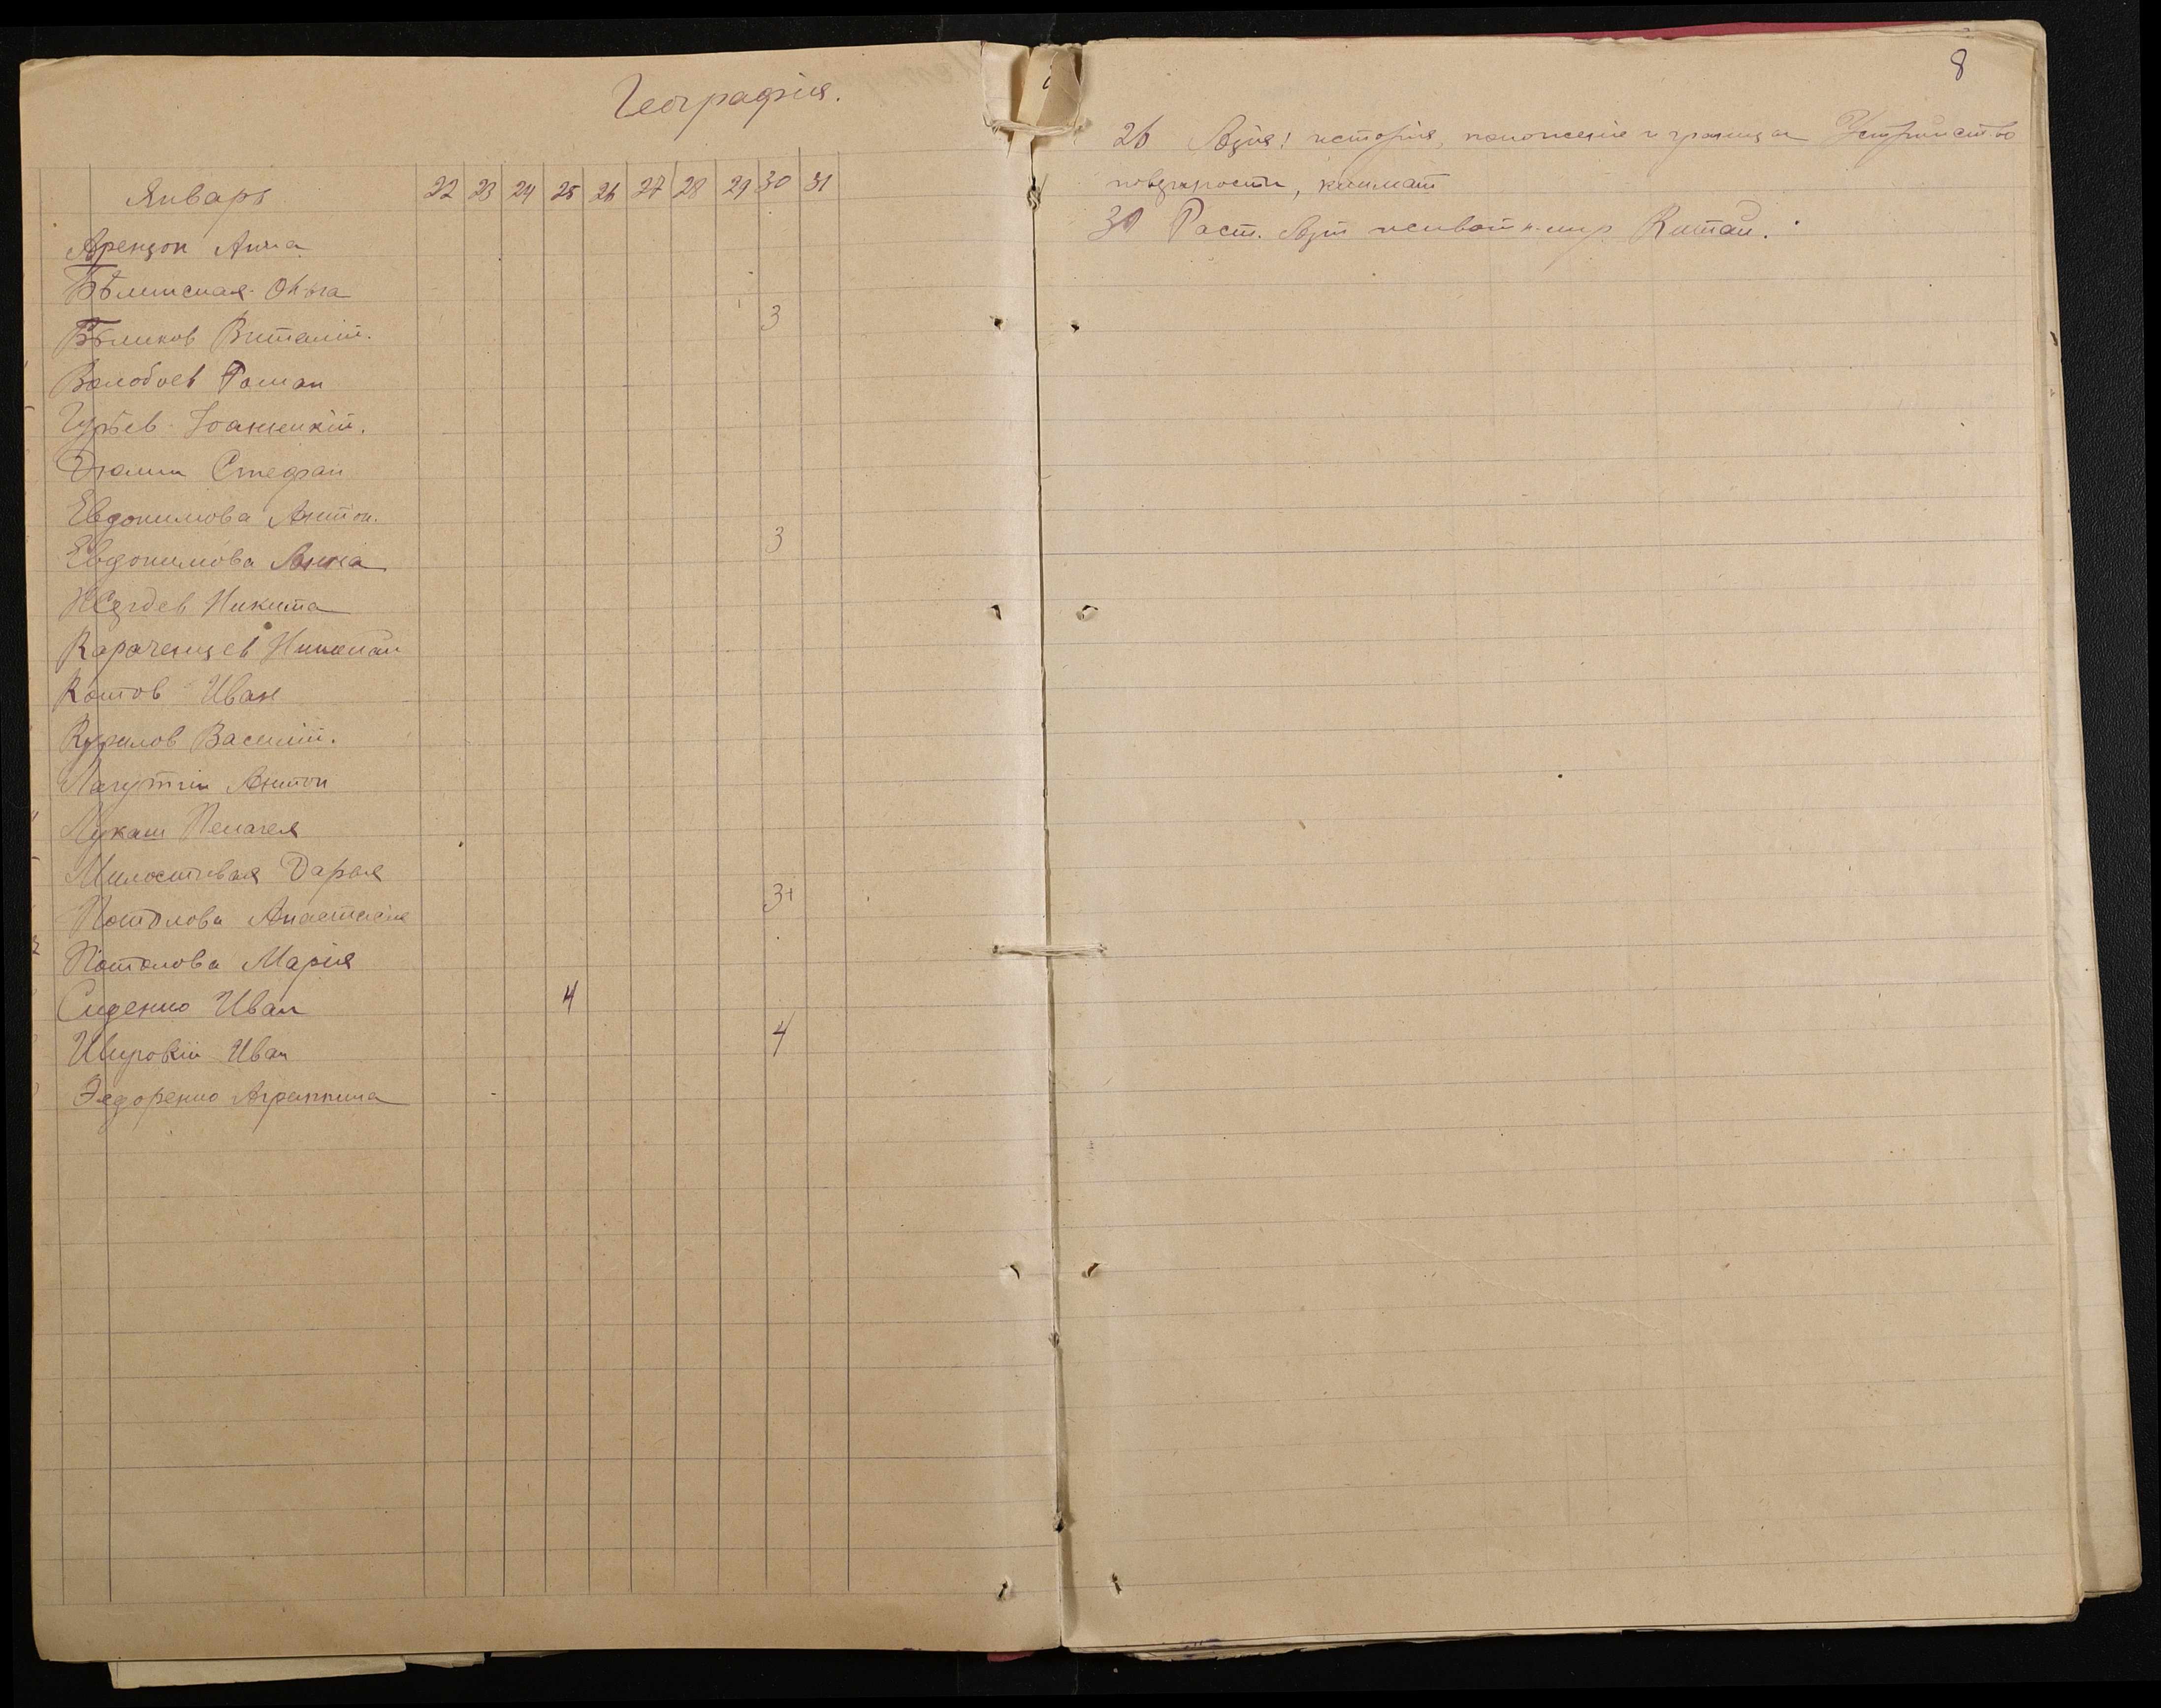 Географія.
Январь 22 23 24 25 26 27 28 29 30 31
Арензон Анна
Бѣлинская Ольга
Бѣликов Виталій. 3
Волобоев Роман
Гурьев Іоанникій.
Дюмин Стефан
Евдокимова Антон.
Евдокимова Анна 3
Никита
Караченцев Николай
Котов Иван
Курилов Василій.
Лагутин Антон
Лукаш Пелагея
Милостивая Дарья
Потолова Анастасія 3+
Потолова Марія
Сиденко Иван 4
Широкій Иван 4
Федоренко Агриппина
8
26 Азія: исторія, положеніе и границы Устройство
поверхности, климат
30 Раст. Азіи и живот. мир Китай.